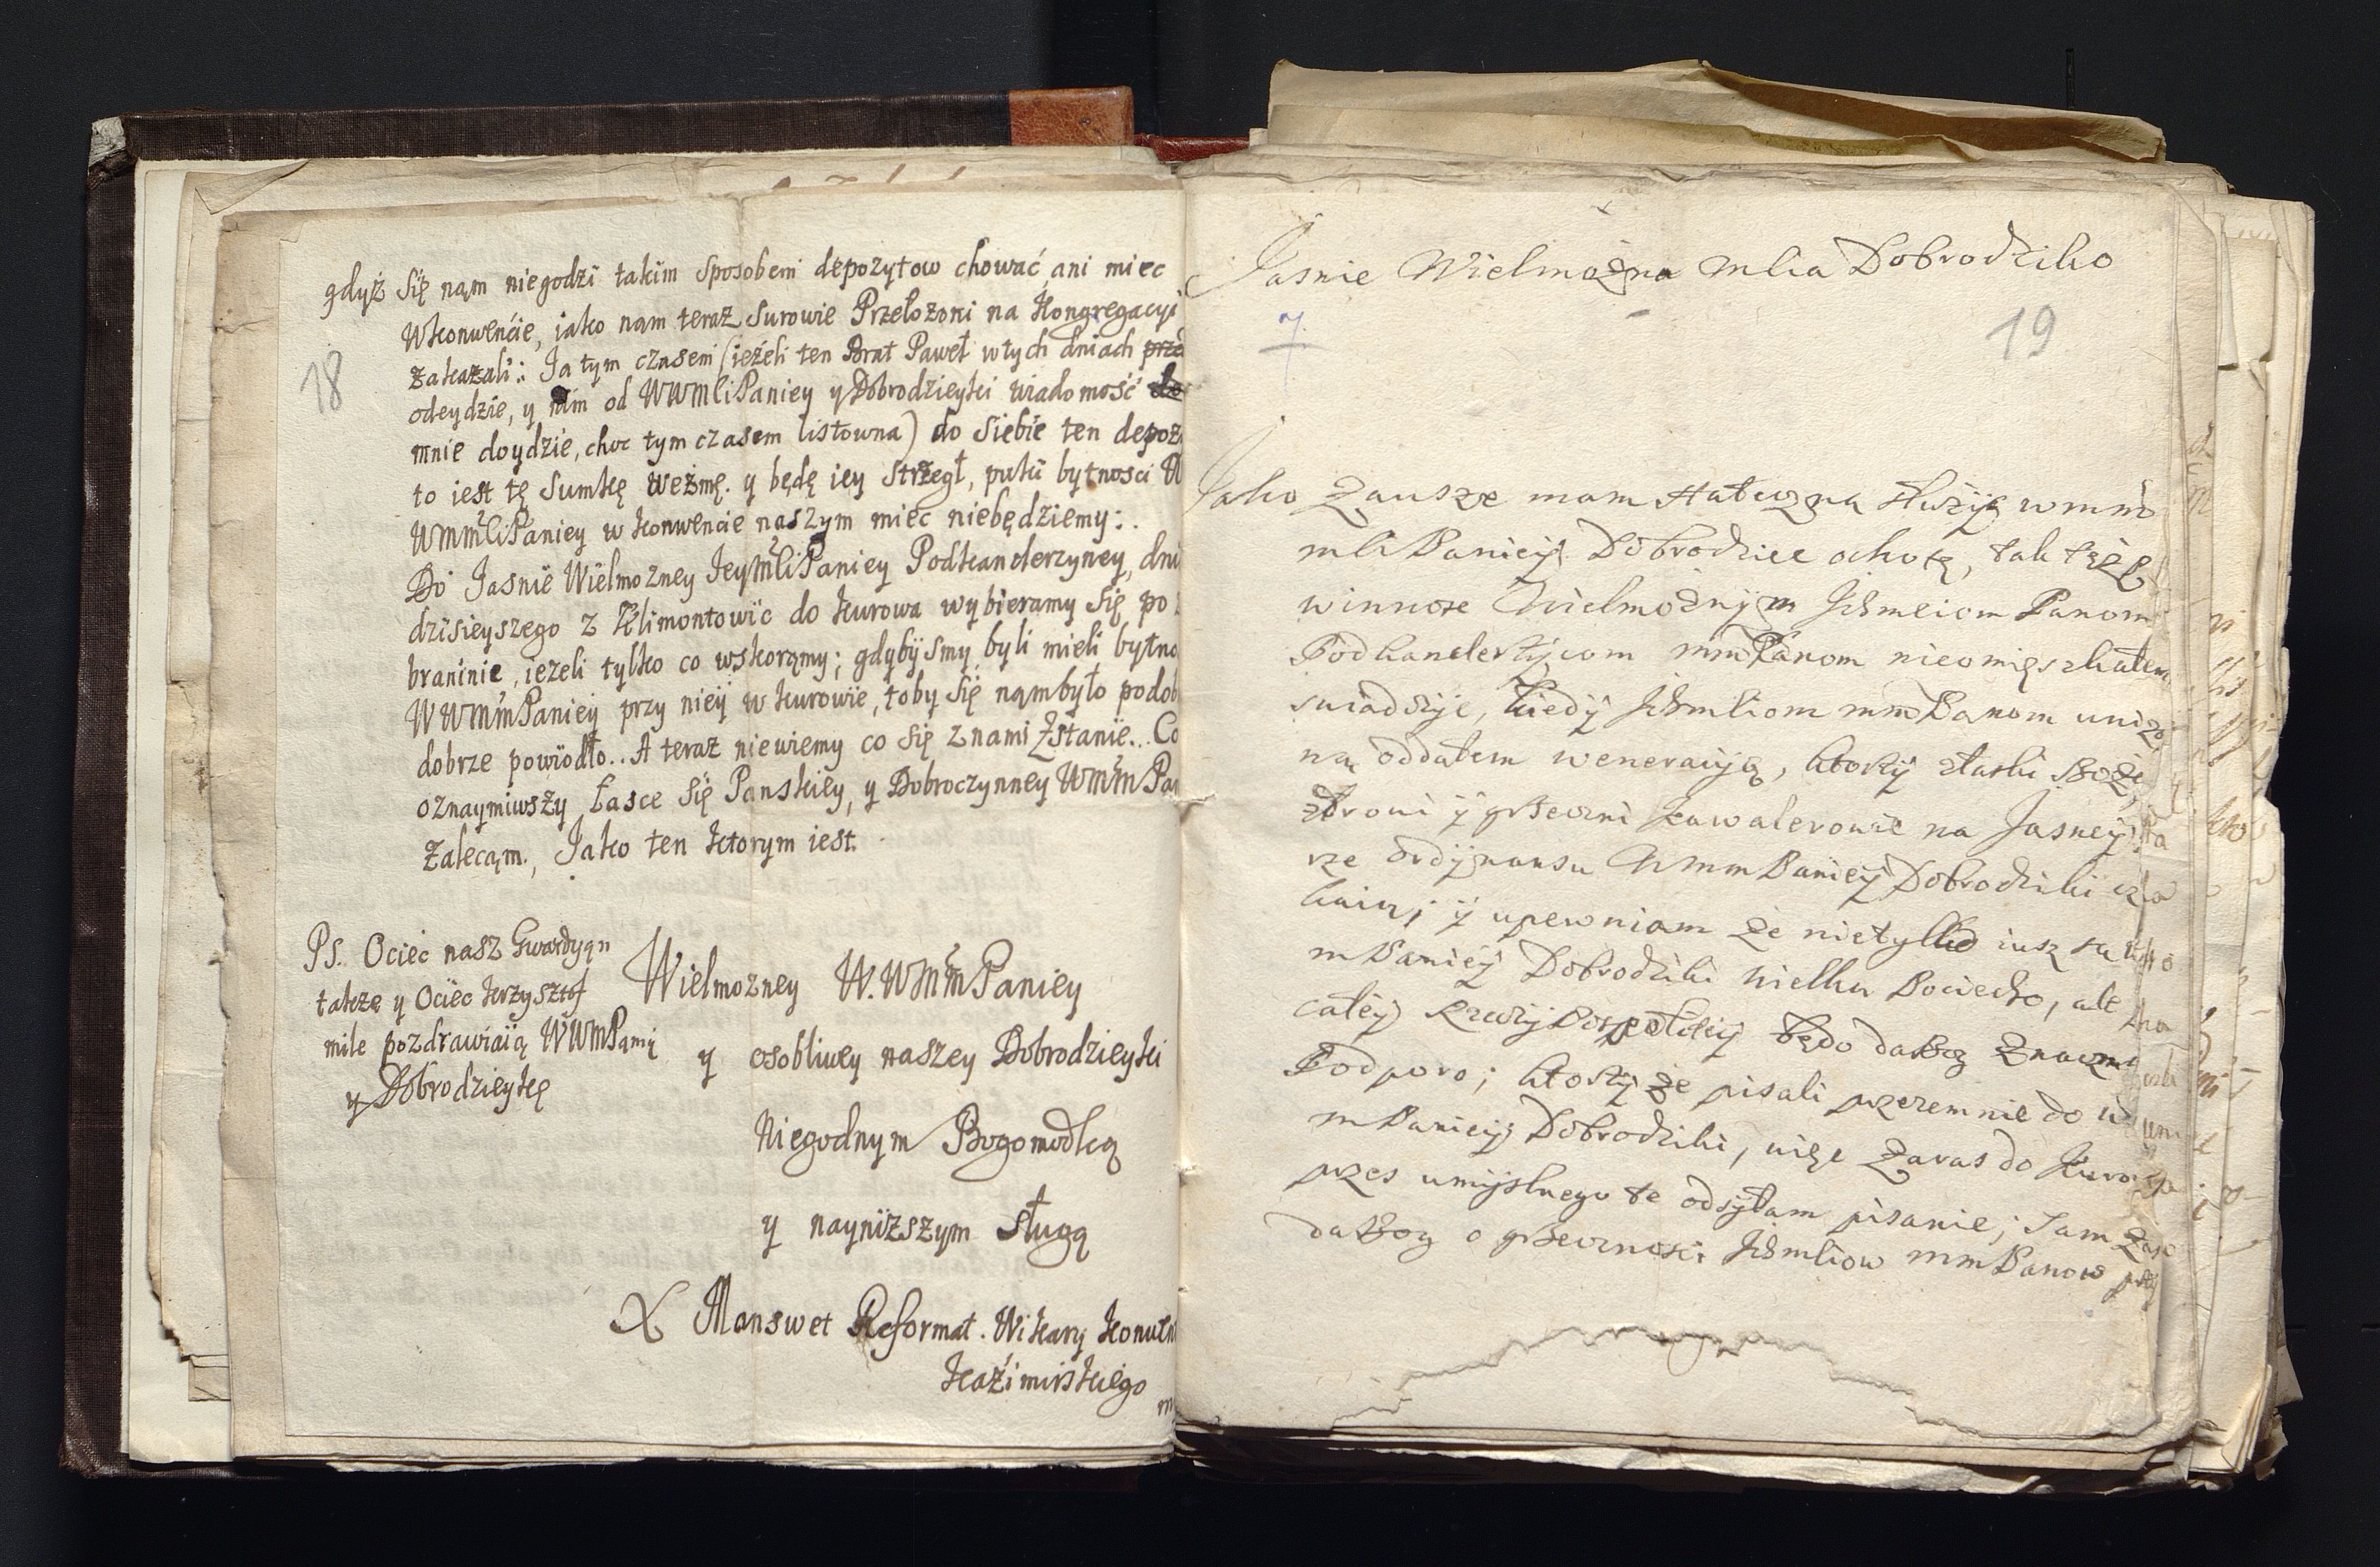 gdyż się nąm niegodzi takim sposobem depozytow chować, ani miec
Wkonwenćie, iako nąm teraz surowie Przełozoni na Kongregacyi
zakazali: Ja tym czasem (ieżeli ten Brat Paweł wtych dniach
odeydzie, y nim od WWMliPaniey y Dobrodzieyki wiadomość
mnie doydzie, choc tym czasem listowna) do siebie ten depoz
to iest tę sumkę weżmę. y będę iey strzegł, puki bytnosci W
WMMliPaniey w Konwencie naszym miec niebędziemy:.
Do Jasnie Wielmozney JeyMliPaniey Podkanclerzyney, dni
dzisieyszego z Klimontowic do Kurowa wybieramy się po
braninie, iezeli tylko co wskorąmy; gdybysmy byli mieli bytno
WWMmPaniey przy niey w Kurowie, toby się nąmbyło podob
dobrze powiodło.. A teraz niewiemy co się znami zstanie.. Co
oznaymiwszy Łasce się Panskiey, y Dobroczynney WMmPan
zalecąm., Jako ten ktorym iest.
18
Ps. Ociec nasz Gwardyąn
takze y Ociec Krzysztof
mile pozdrawiaią WWMPąnię
y Dobrodzieykę
Wielmozney W.WMmPaniey
y osobliwey naszey Dobrodzieyki
Niegodnym Bogomodlcą
y nayniższym sługą
X Manswet Reformat. Wikary Konwen
Kaźimirskiego
Jasnie Wielmożna mlia Dobrodziko
19
7.
Jako zausze mam stateczną służyc wmm
mliPaniey Dobrodzice ochotę, tak też
winnose Wielmożnym Jchmliom Panom
Podkanclerzycom mmPanom nieomięszkałem
swiadczyc, kiedy Jchmliom mmPanom unizo
ną oddałem weneracyją, ktorzy złaski Boże
zdrowi y grzeczni kawalerowie na Jasney
rze ordynansu WmmPaniey Dobrodziki cze
kaią; y upewniam że nietylko iusz są
mPaniey Dobrodziki wielką Pociecho, ale
całey Rzeczypospolitey będo daBog znaczną
Podporo; ktorzy że pisali przezemnie do W
mPaniey Dobrodziki, więc zaras do Kurowa
przes umyslnego te odsyłam pisanie; Sam zas
daBog o grzecznosci Jchmliow mmPanow przy